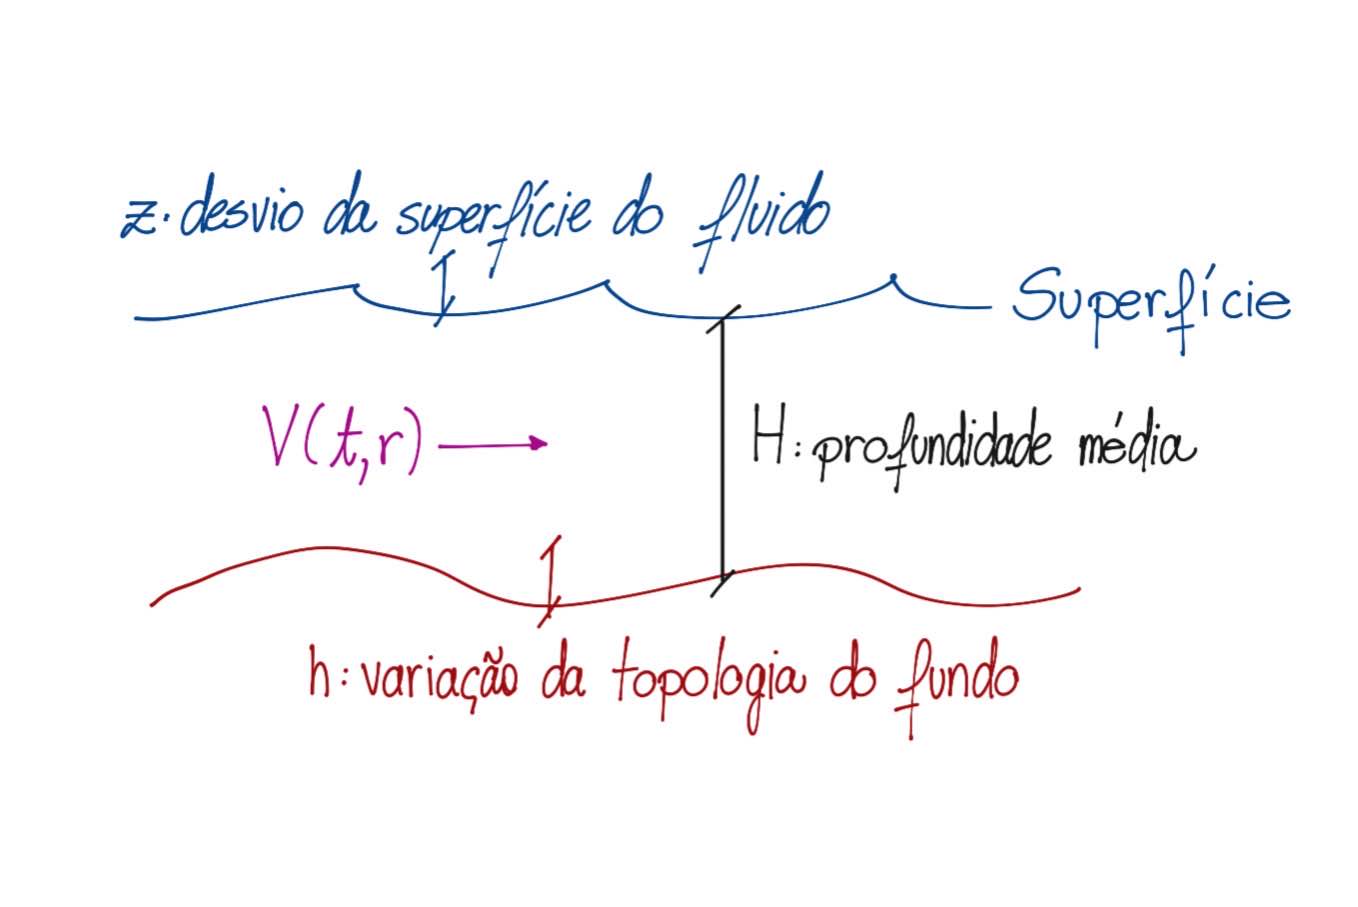 z: desvio da superfície do fluido
Superfície
V(t,r)
H: profundidade média
h: variação da topologia do fundo